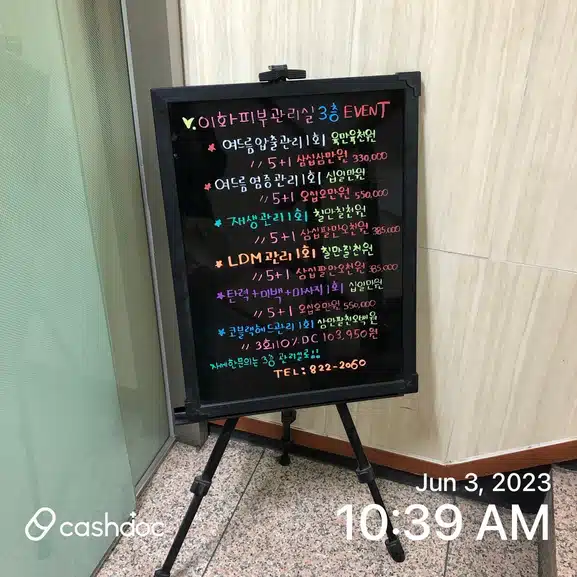 V. 이화피부관리실 3층 EVENT
* 여드름압출관리 1회 육만육천원
〃 5+1 삼십삼만원 330,000
* 여드름염증관리 1회 십일만원
〃 5+1 오십오만원 550,000
* 재생관리 1회 칠만칠천원
〃 5+1 삼십팔만오천원 385,000
* LDM관리 1회 칠만칠천원
〃 5+1 삼십팔만오천원 385,000
* 탄력+미백+마사지 1회 십일만원
〃 5+1 오십오만원 550,000
* 코블랙헤드관리 1회 삼만팔천오백원
〃 3회 10% DC 103,950원
자세한문의는 3층 관리실로
TEL: 822-2060
Jun 3, 2023
10:39 AM
cashdoc